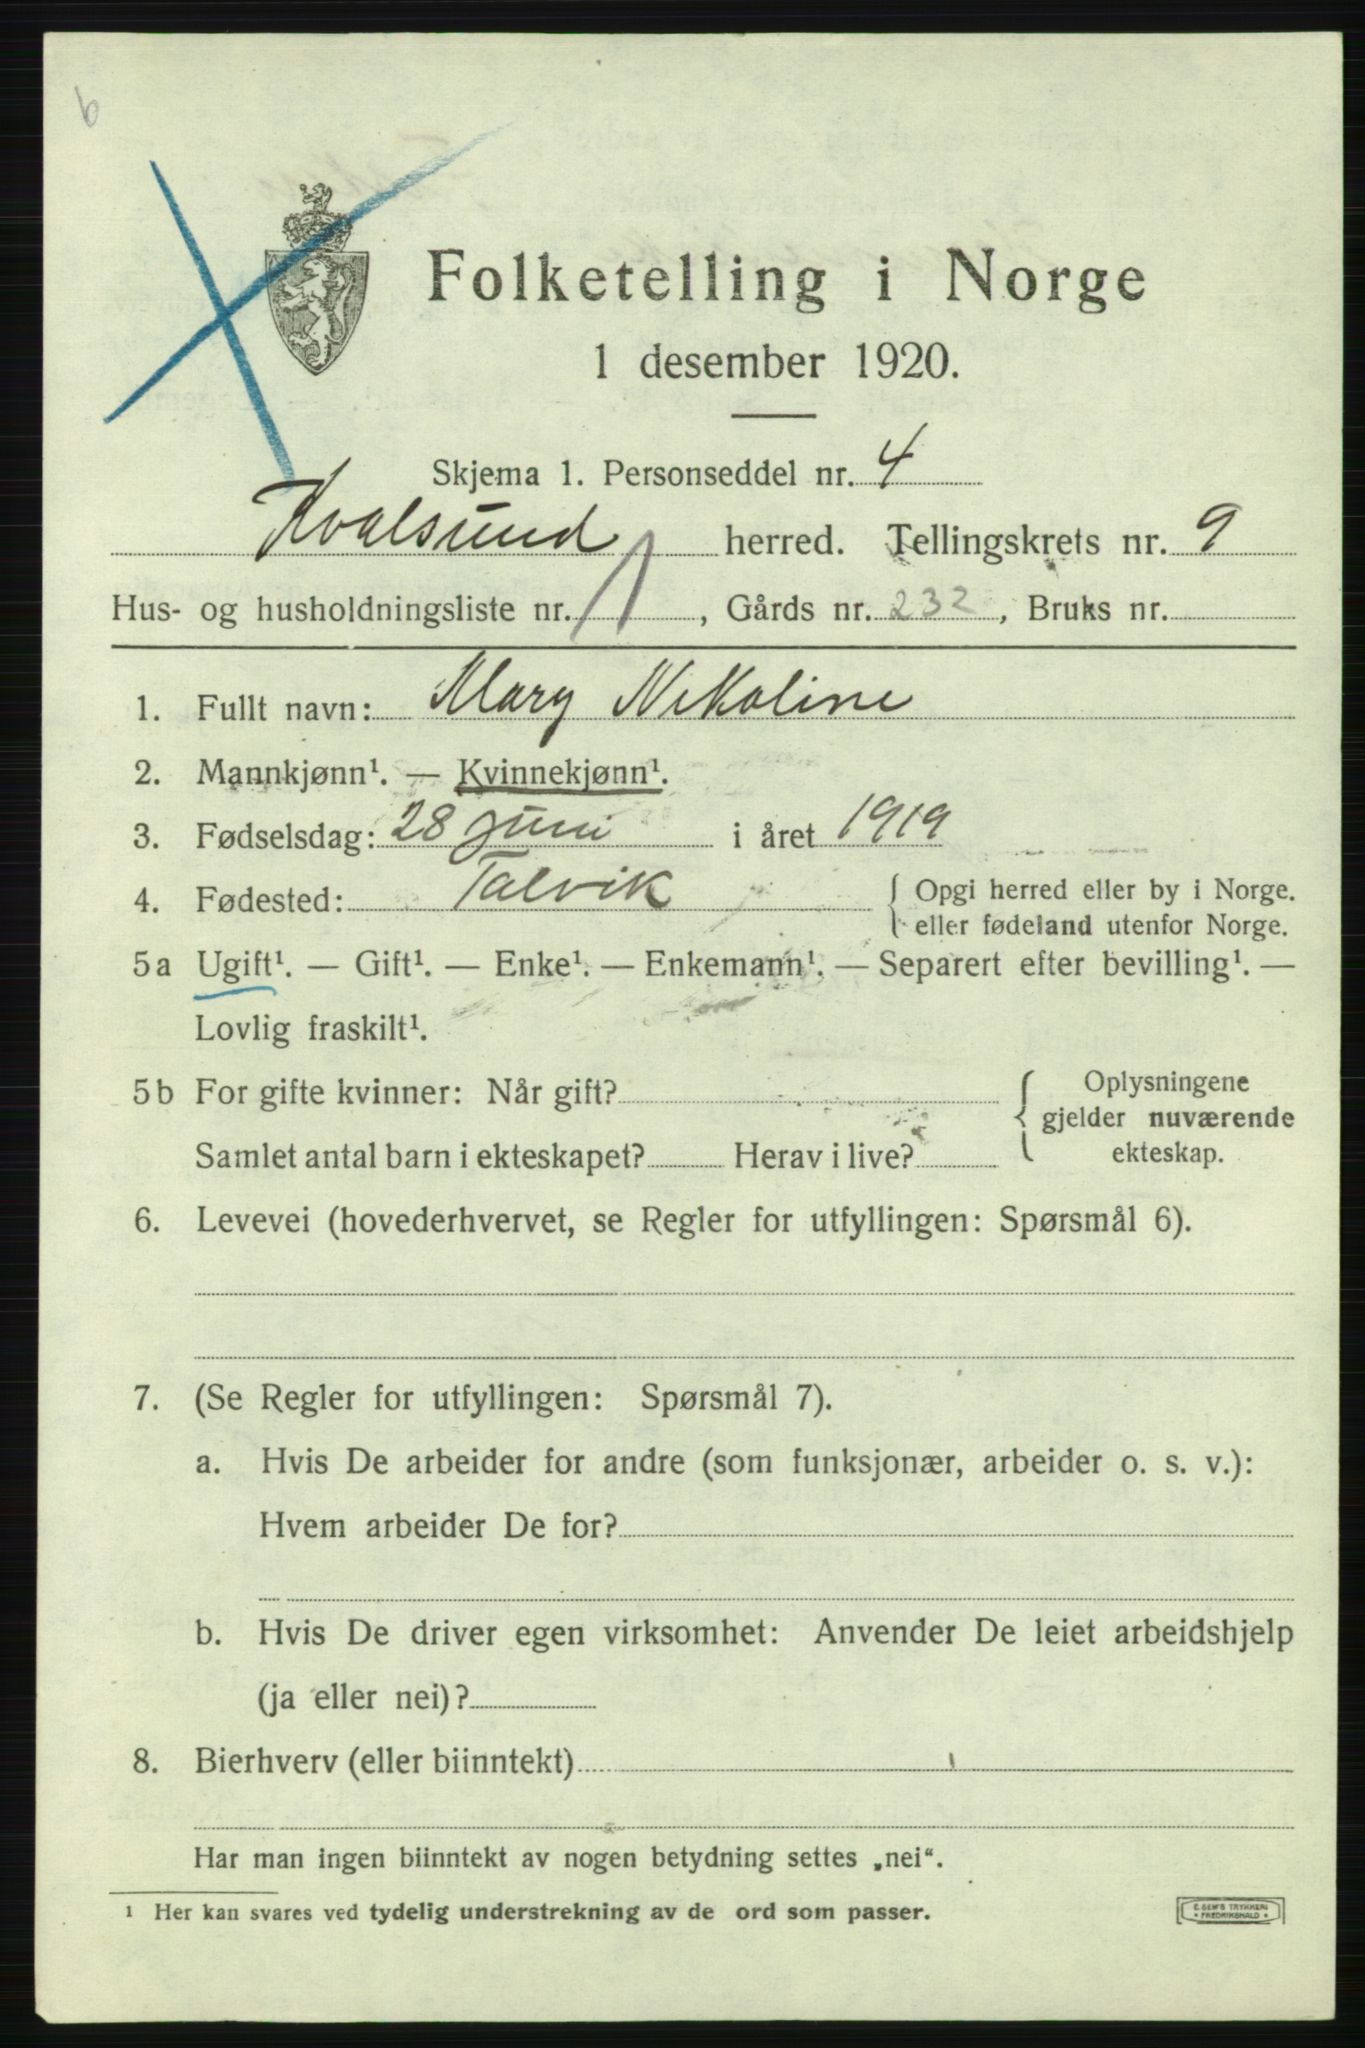 b
Folketelling i Norge
1 desember 1920.
Skjema 1. Personseddel nr. 4
Kvalsund herred. Tellingskrets nr. 9
Hus- og husholdningsliste nr. 1, Gårds nr. 232, Bruks nr.
1. Fullt navn: Mary Nikoline
2. Mannkjønn¹. — Kvinnekjønn¹.
3. Fødselsdag: 28 juni i året 1919
4. Fødested: Talvik { Opgi herred eller by i Norge.
eller fødeland utenfor Norge.
5a Ugift¹. — Gift¹. — Enke¹. — Enkemann¹. — Separert efter bevilling¹. —
Lovlig fraskilt¹.
5b For gifte kvinner: Når gift? { Oplysningene
gjelder nuværende
Samlet antal barn i ekteskapet? Herav i live? ekteskap.
6. Levevei (hovederhvervet, se Regler for utfyllingen: Spørsmål 6).
7. (Se Regler for utfyllingen: Spørsmål 7).
a. Hvis De arbeider for andre (som funksjonær, arbeider o. s. v.):
Hvem arbeider De for?
b. Hvis De driver egen virksomhet: Anvender De leiet arbeidshjelp
(ja eller nei)?
8. Bierhverv (eller biinntekt)
Har man ingen biinntekt av nogen betydning settes „nei“.
¹ Her kan svares ved tydelig understrekning av de ord som passer.
E. SEM'S TRYKKERI
• FREDRIKSHALD •